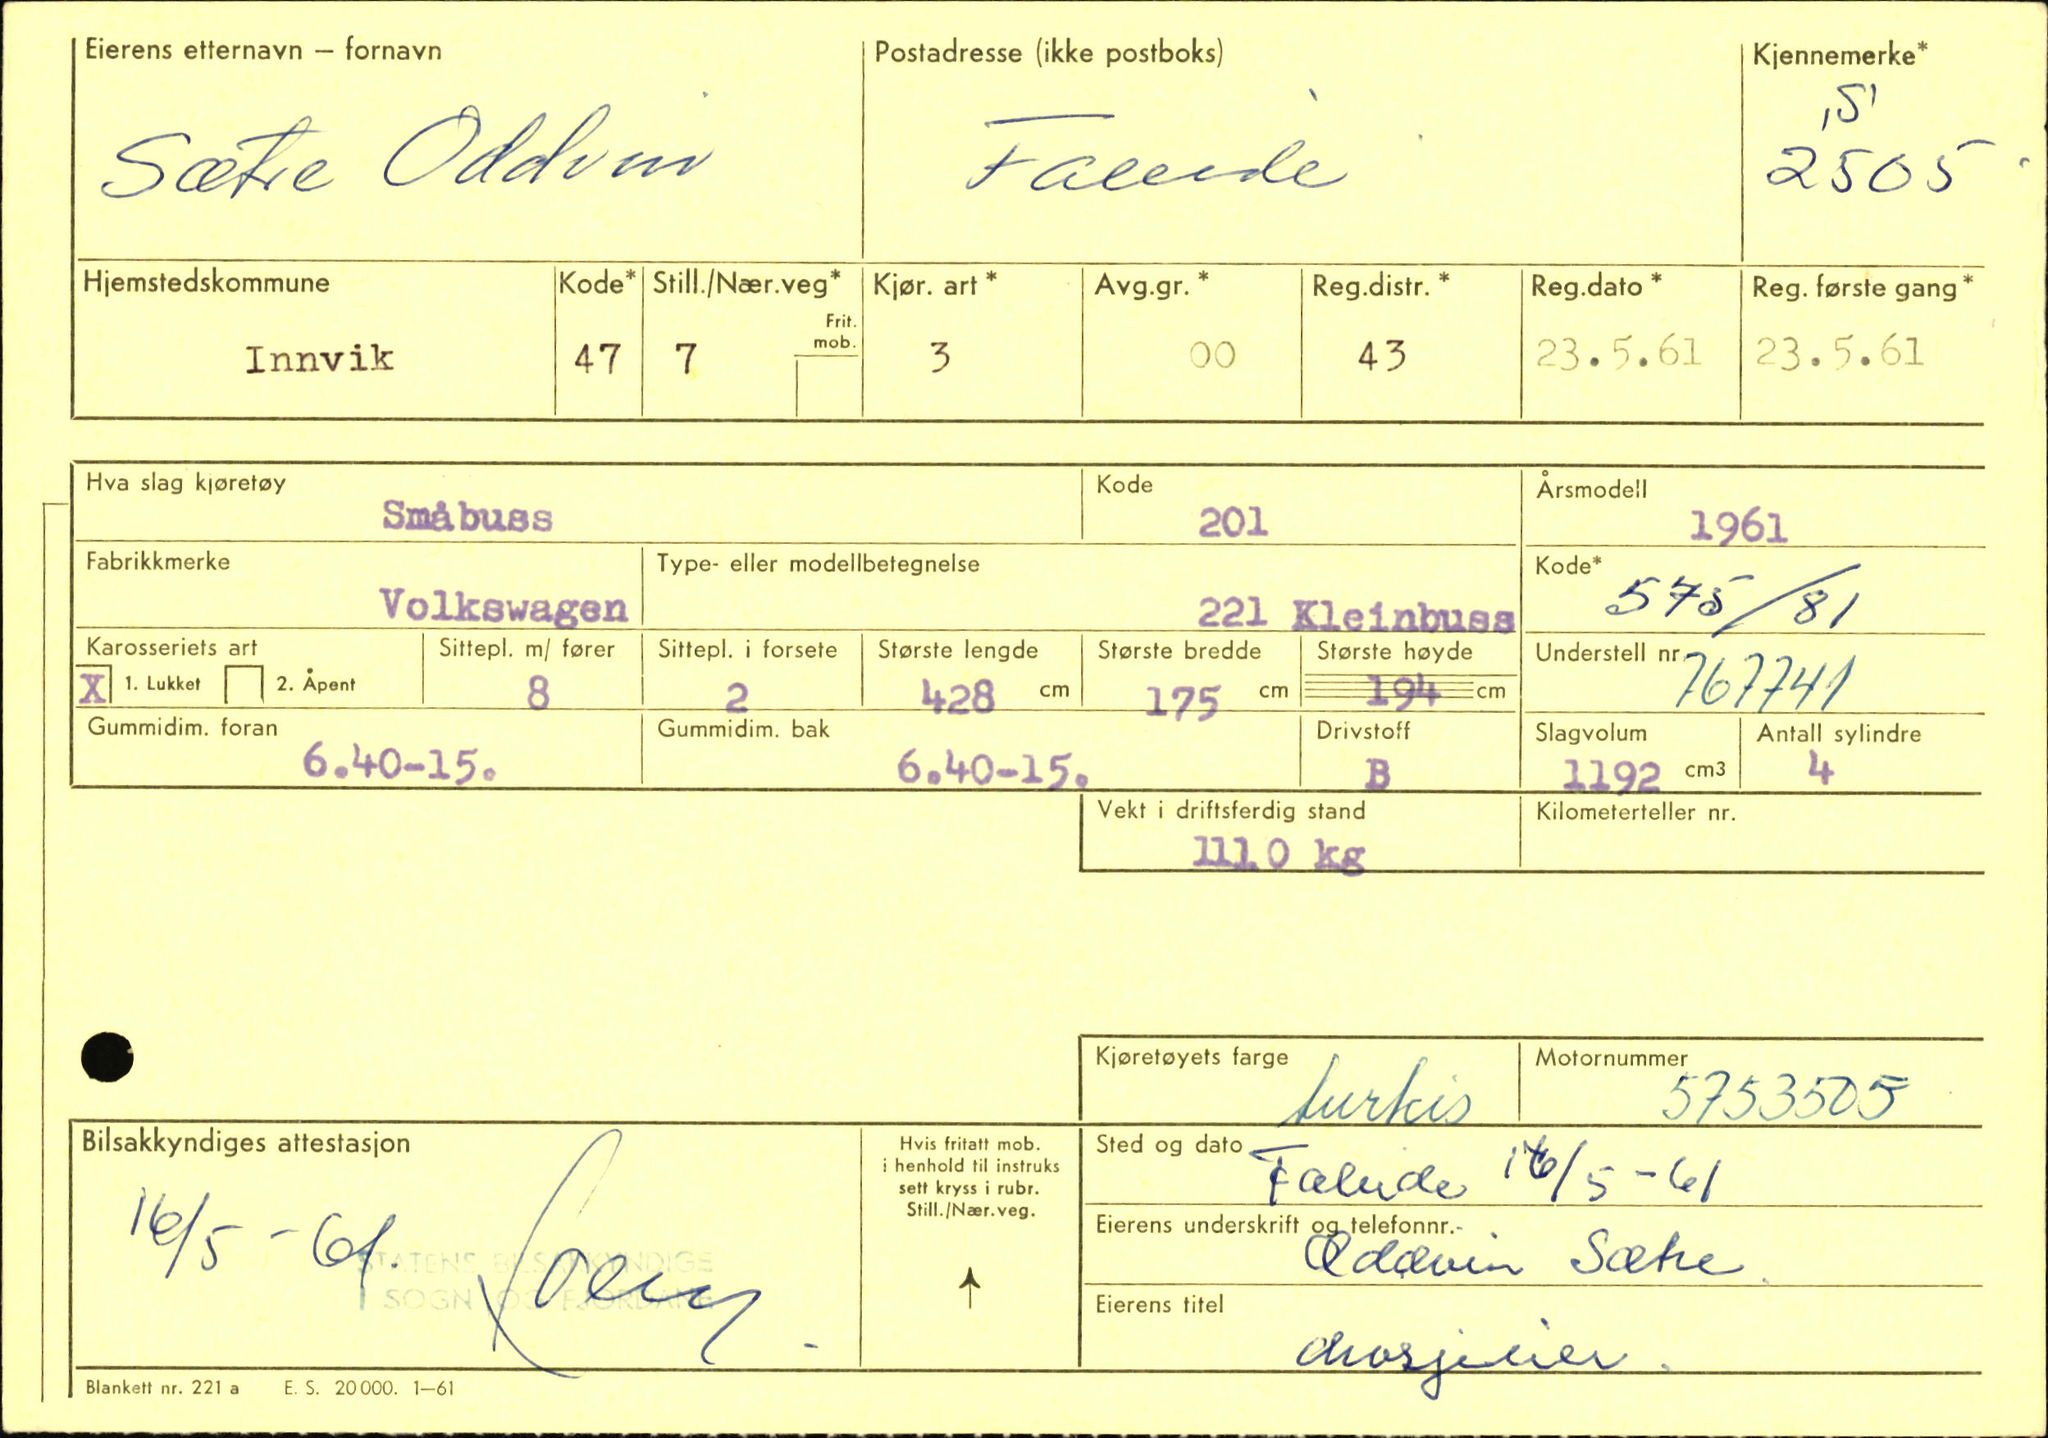 Eierens etternavn – fornavn
Sætre Oddvin
Postadresse (ikke postboks)
Faleide
Kjennemerke*
"S"
2505
Hjemstedskommune
Innvik
Kode*
47
Still./Nær.veg*
7
Frit.
mob.
Kjør. art*
3
Avg.gr.*
00
Reg.distr.*
43
Reg.dato*
23.5.61
Reg. første gang*
23.5.61
Hva slag kjøretøy
Småbuss
Kode
201
Årsmodell
1961
Fabrikkmerke
Volkswagen
Type- eller modellbetegnelse
221 Kleinbuss
Kode*
575/81
Karosseriets art
X 1. Lukket 2. Åpent
Sittepl. m/ fører
8
Sittepl. i forsete
2
Største lengde
428 cm
Største bredde
175 cm
Største høyde
194 cm
Understell nr.
767741
Gummidim. foran
6.40-15.
Gummidim. bak
6.40-15.
Drivstoff
B
Slagvolum
1192 cm3
Antall sylindre
4
Vekt i driftsferdig stand
1110 kg
Kilometerteller nr.
Kjøretøyets farge
turkis
Motornummer
5753505
Bilsakkyndiges attestasjon
16/5-61.
STATENS BILSAKKYNDIGE
SOGN OG FJORDANE
Hvis fritatt mob.
i henhold til instruks
sett kryss i rubr.
Still./Nær.veg.
Sted og dato
Faleide 16/5-61
Eierens underskrift og telefonnr.-
Oddvin Sætre.
Eierens titel
drosjeeier.
Blankett nr. 221 a E. S. 20000. 1–61